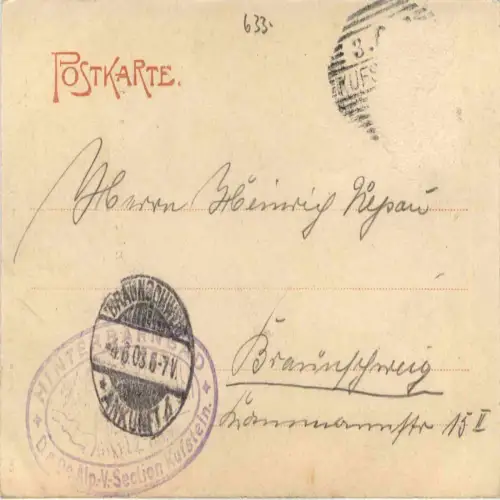 633.
POSTKARTE.
3.
KUFS
Herrn Heinrich
BRAUNSCHWEIG
4.8.03.6-7V.
* ANKUNFT *
HINTERBÄRENBAD
Alp.-V.-Section Kufstein.
Braunschweig
15 II